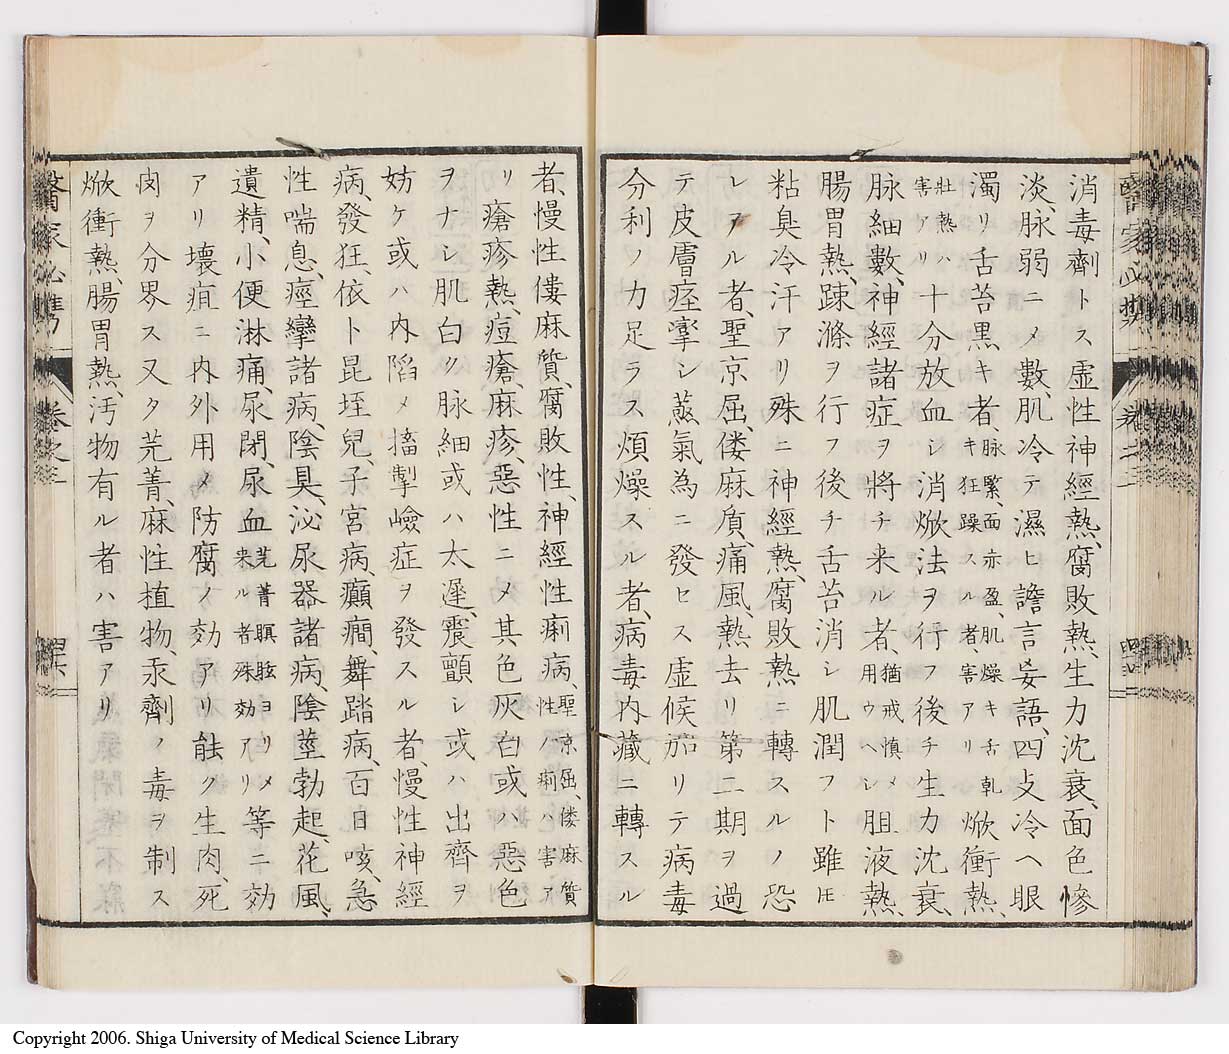 消毒劑トス虚性神經熱、腐敗熱、生力沈衰、面色慘
淡、脉弱ニメ數、肌冷テ濕ヒ譫言妄語、四支冷ヘ眼
濁リ舌苔黒キ者、脉緊、面赤盈、肌燥キ舌乾
キ狂躁スル者、害アリ焮衝熱、
壮熱ハ
害アリ十分放血シ消焮法ヲ行フ後チ生力沈衰、
脉細數、神經諸症ヲ將チ来ル者、猶戒慎メ
用ウヘシ胆液熱、
腸胃熱、踈滌ヲ行フ後チ舌苔消シ肌潤フト雖𪜈
粘臭冷汗アリ殊ニ神經熱、腐敗熱ニ轉スルノ恐
レアル者、聖京屈、僂麻質、痛風、熱去リ第二期ヲ過
テ皮膚痙攣シ蒸氣為ニ發セス虚候加リテ病毒
分利ノ力足ラス煩燥スル者、病毒内藏ニ轉スル
者、慢性僂麻質、腐敗性、神經性痢病、聖京屈、僂麻質
性ノ痢ハ害ア
リ瘡疹熱、痘瘡、麻疹、惡性ニメ其色灰白或ハ惡色
ヲナシ肌白ク脉細或ハ太遲、震顫シ或ハ出齊ヲ
妨ケ或ハ内陷メ搐掣嶮症ヲ發スル者、慢性神經
病、發狂、依卜昆垤兒、子宮病、癲癇、舞踏病、百日咳、急
性喘息、痙攣諸病、陰臭、泌尿器諸病、陰莖勃起、花風、
遺精、小便淋痛、尿閉、尿血芫菁瞑眩ヨリメ
来ル者殊効アリ等ニ効
アリ壊疽ニ内外用メ防腐ノ効アリ能ク生肉、死
肉ヲ分界ス又タ芫菁、麻性植物、汞劑ノ毒ヲ制ス
焮衝熱、腸胃熱、汚物有ル者ハ害アリ
醫家必携
卷之二